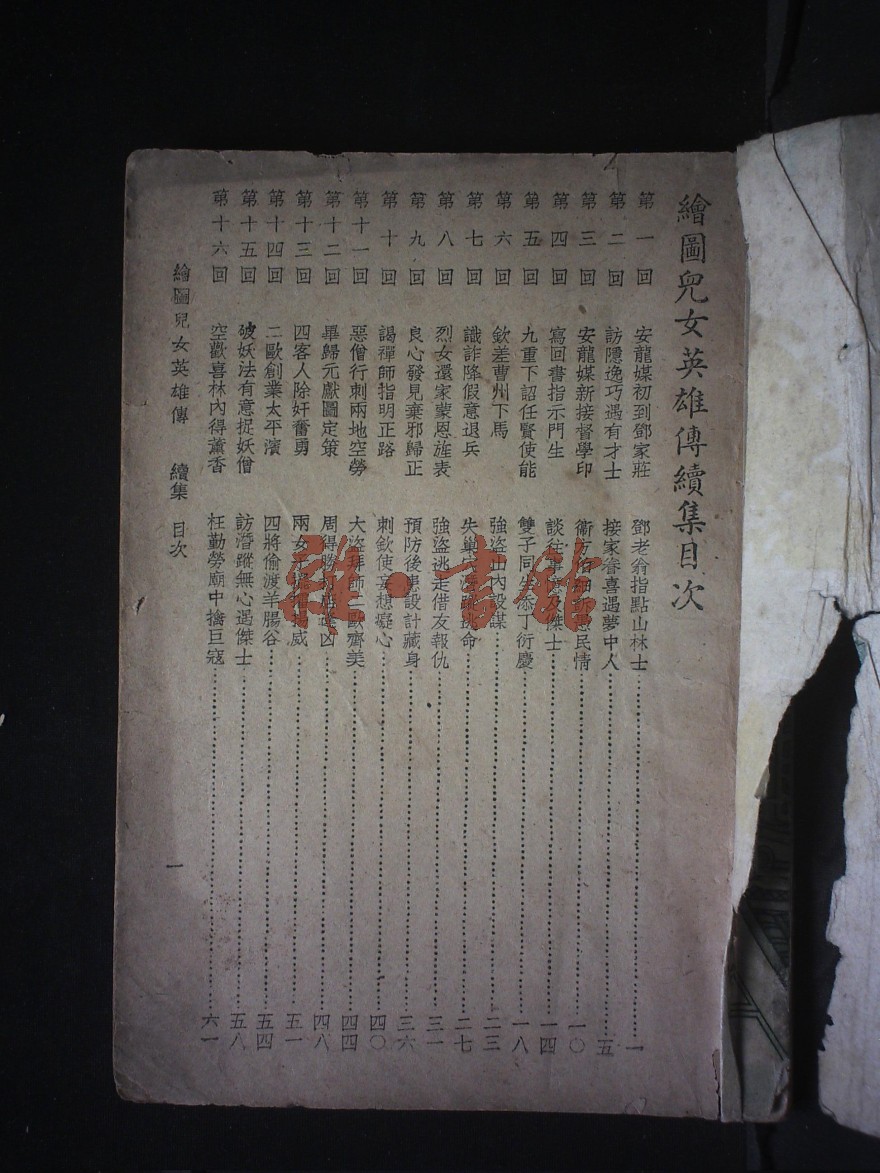 繪圖兒女英雄傳續集目次
第一回 安龍媒初到鄧家莊 鄧老翁指點山林士 一
第二回 訪隱逸巧遇有才士 接家眷喜遇夢中人 五
第三回 安龍媒新接督學印 衞方伯細訴民情 一〇
第四回 寫回書指示門生 談往事及傑士 一四
第五回 九重下詔任賢使能 雙子同生添丁衍慶 一八
第六回 欽差曹州下馬 強盜山內設謀 二三
第七回 識詐降假意退兵 失巢穴逃命 二七
第八回 烈女還家蒙恩旌表 強盜逃走借友報仇 三一
第九回 良心發見棄邪歸正 預防後患設計藏身 三六
第十回 謁禪師指明正路 刺欽使妄想癡心 四〇
第十一回 惡僧行刺兩地空勞 大盜拜師二歐齊美 四四
第十二回 畢歸元獻圖定策 周得勝凶 四八
第十三回 四客人除奸奮勇 兩女威 五一
第十四回 二歐創業太平濱 四將偷渡羊腸谷 五四
第十五回 破妖法有意捉妖僧 訪潛蹤無心遇傑士 五八
第十六回 空歡喜林內得薰香 枉勤勞廟中擒巨寇 六一
繪圖兒女英雄傳 續集 目次
一
雜·書館